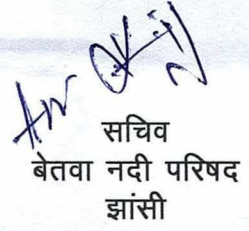 सचिव
बेतवा नदी परिषद
झांसी